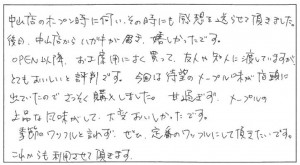 中山店のオープン時に伺い、その時にも感想を送らせて頂きました。
後日、中山店からハガキが届き、嬉しかったです。
OPEN以降、お土産用によく買って、友人や知人に渡していますが、
とてもおいしいと評判です。今回は待望のメープル味が店頭に
出ていたのでさっそく購入しました。甘過ぎず、メープルの
上品な風味がして、大変おいしかったです。
季節のワッフルと言わず、ぜひ、定番のワッフルにして頂きたいです。
これからも利用させて頂きます。